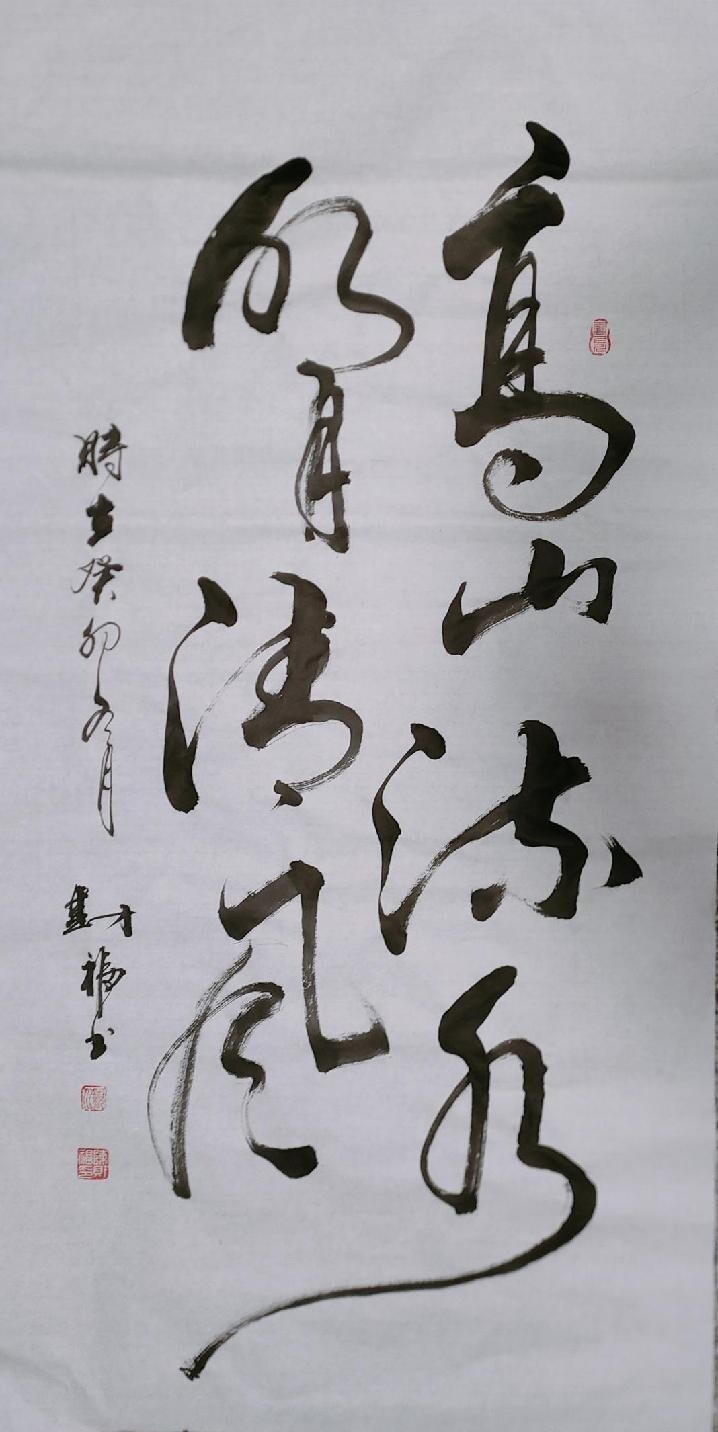 高山流水
明月清风
時在癸卯冬月
福书